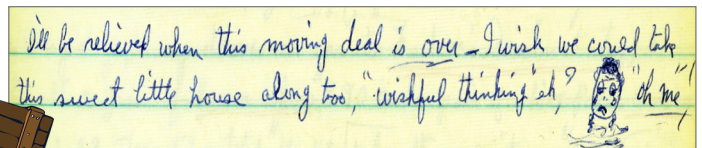 I'll be relieved when this moving deal is over - I wish we could take
this sweet little house along too, "wishful thinking" eh,? "oh me"!